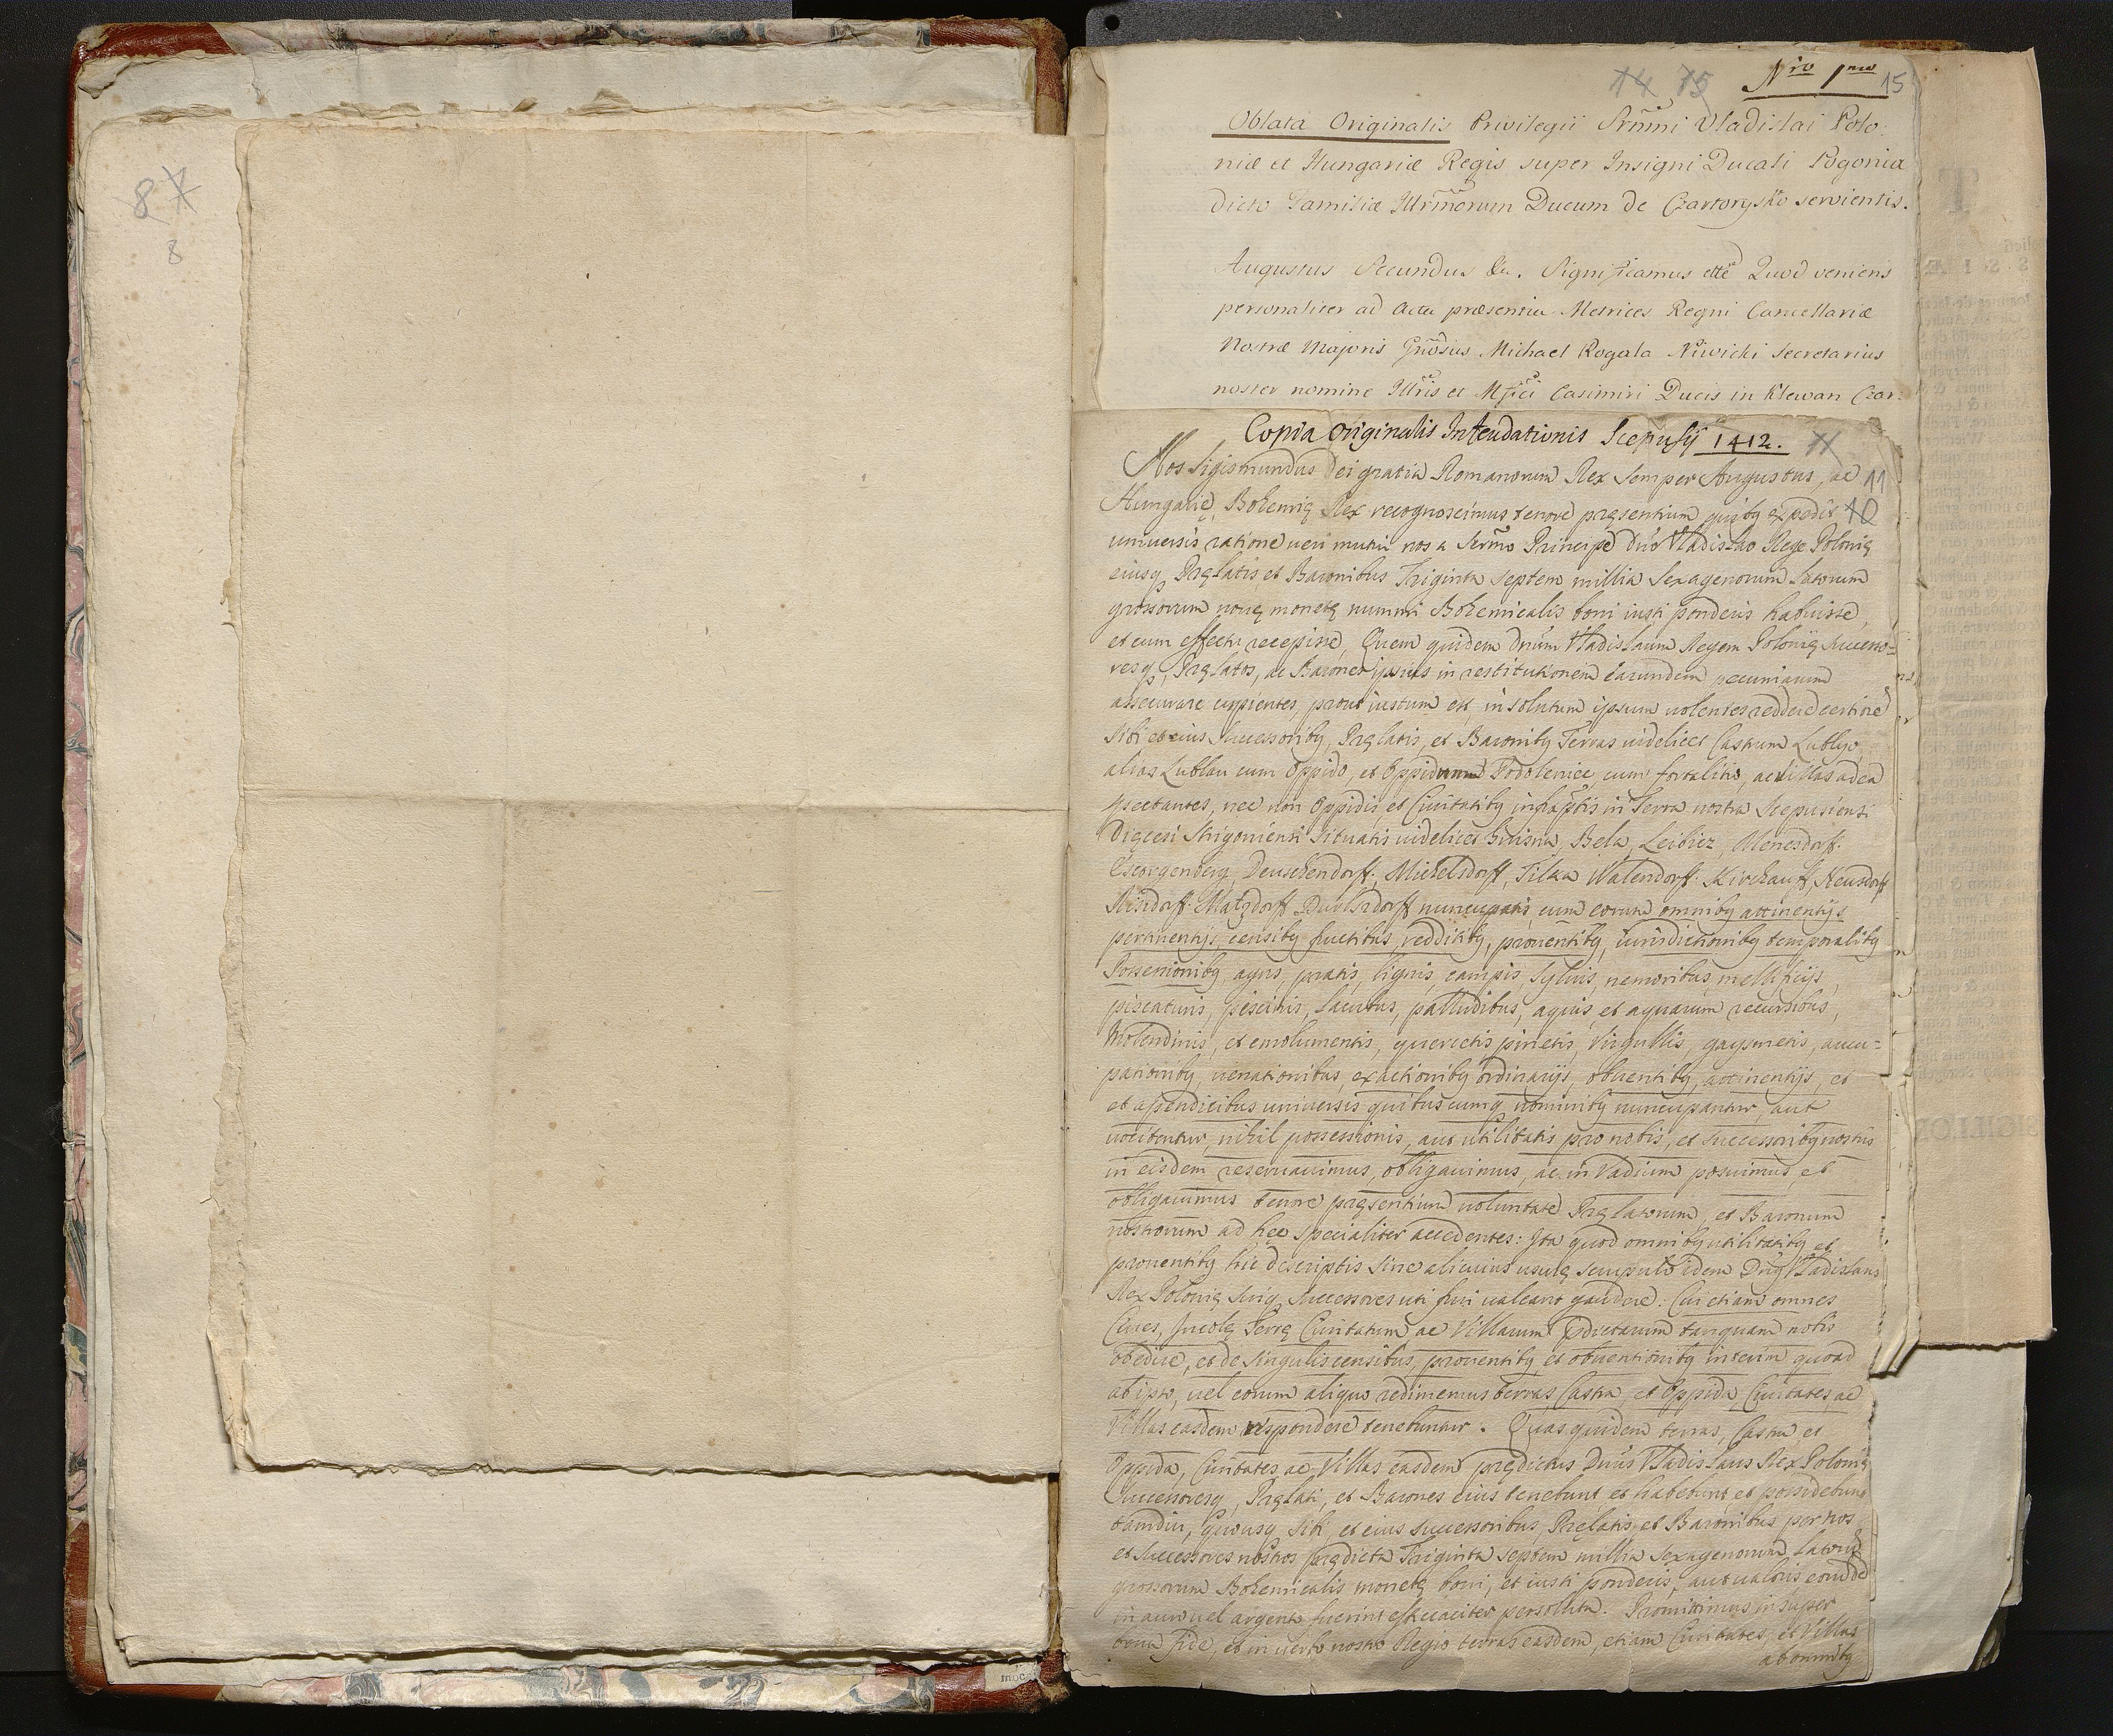 8 7
8
14 15 Nro 1mo 15
Oblata Originalis Privilegii Srm̃ni Vladislai Polo
niæ et Hungariæ Regis super Insigni Ducali Pogonia
dicto Familiæ Illrm̃orum Ducum de Czartorysko servientis.
Augustus Secundus &c. Significamus ettc Quod veniens
personaliter ad Acta præsentia Metrices Regni Cancellariæ
Nostræ Majoris Gñosus Michael Rogala Niwicki Secretarius
noster nomine Illris et Mfici Casimiri Ducis in Klewan Czar:
Copia Originalis Infeudationis Scepusij 1412. 11
Nos Sigismundus Dei gratia Romanorum Rex Semper Augustus, ac 11
Hungarię, Bohemię Rex recognoscimus tenore pręsentium quibq expedit 10
universis ratione veri mutui nos a Sermo Principe Dño Vladislao Rege Polonię
eiusq Pręlatis et Baronibus Triginta septem millia Sexagenorum latorum
grossorum nouę monetę nummi Bohemicalis boni iusti ponderis habuisse,
et cum effectu recepisse, Quem quidem Dnum Vladislaum Regem Polonię successo=
resq, Pręlatos, ac Barones ipsius in restitutionem earundem pecuniarum
assecurare cupientes, prout iustum est in solutum ipsum uolentes reddere certiorẽ
sibi et eius Successoribq, Pręlatis, et Baronibq Terras uidelicet Castrum Lublyo
alias Lublau cum Oppido, et Oppidum Podolenice cum fortalitio, ac Villas ad ea
spectantes, nec non Oppidis, et Ciuitatibq infraptis in Terra nostra Scepusiensi
Dięcesi Strigoniensi situatis uidelicet Gnisna, Bela, Leibicz, Menesdorff.
Georgenberg, Deuschendorff, Michelsdorff, Filka Walendorff. Kirchauff, Neusdorff
Risdorff. Matzdorff Durlsdorff nuncupatis cum eorum omnibq attinentijs
pertinentijs, censibq fructibus, redditibq, prouentibq, iurisdictionibq temporalibq
Possessionibq, agris, pratis, lignis, campis, syluis, nemoribus, mellificijs,
piscaturis, piscinis, lacubus, palludibus, aquis, et aquarum recursibus,
Molendinis, et emolumentis, quercetis, pinetis, Virgultis, gaysmetis, aucu=
pationibq, uenationibus, exactionibq ordinarijs, obuentibq, attinentijs, et
et apendicibus uniuersis quibuscumq nominibq nuncupantur, aut
uocitentur, nihil possessionis, aut utilitatis pro nobis, et successoribq nostris
in eisdem reseruauimus, obligauimus, ac in Vadium posuimus, et
obligauimus tenore pręsentium uoluntate Pręlatorum, et Baronum
nostrorum ad hęc specialiter accedentes: Ita quod omnibq utilitatibq et
prouentibq hic descriptis sine alicuius usurę scrupulo idem Dñus Vladislaus
Rex Polonię suiq successores uti frui ualeant gaudere: Cui etiam omnes
Ciues, Incolę Terrę Ciuitatum ac Villarum pdictarum tanquam nobis
obedire, et de singulis censibus, prouentibq et obuentionibq interim quoad
ab ipso, uel eorum aliquo redimemus terras, Castra, et Oppida, Ciuitates, ac
Villas easdem respondere tenebuntur. Quas quidem terras, Castra, et
Oppida, Ciuitates ac Villas easdem prędictus Dnus Vladislaus Rex Polonię
Successoresq, Pręlati, et Barones eius tenebunt, et habebunt, et possidebunt
tamdiu, quousq sibi, et eius successoribus, Prælatis, et Baronibus per nos
et Successores nostros prędicta Triginta septem millia Sexagenorum latorũ
grossorum Bohemicalis monetę boni, et iusti ponderis, aut ualoris eorumdẽ
in auro uel argento fuerint efficaciter persoluta. Promittimus insuper
bona fide, et in uerbo nostro Regio terras easdem, etiam Ciuitates, et Villas
ab omnibq